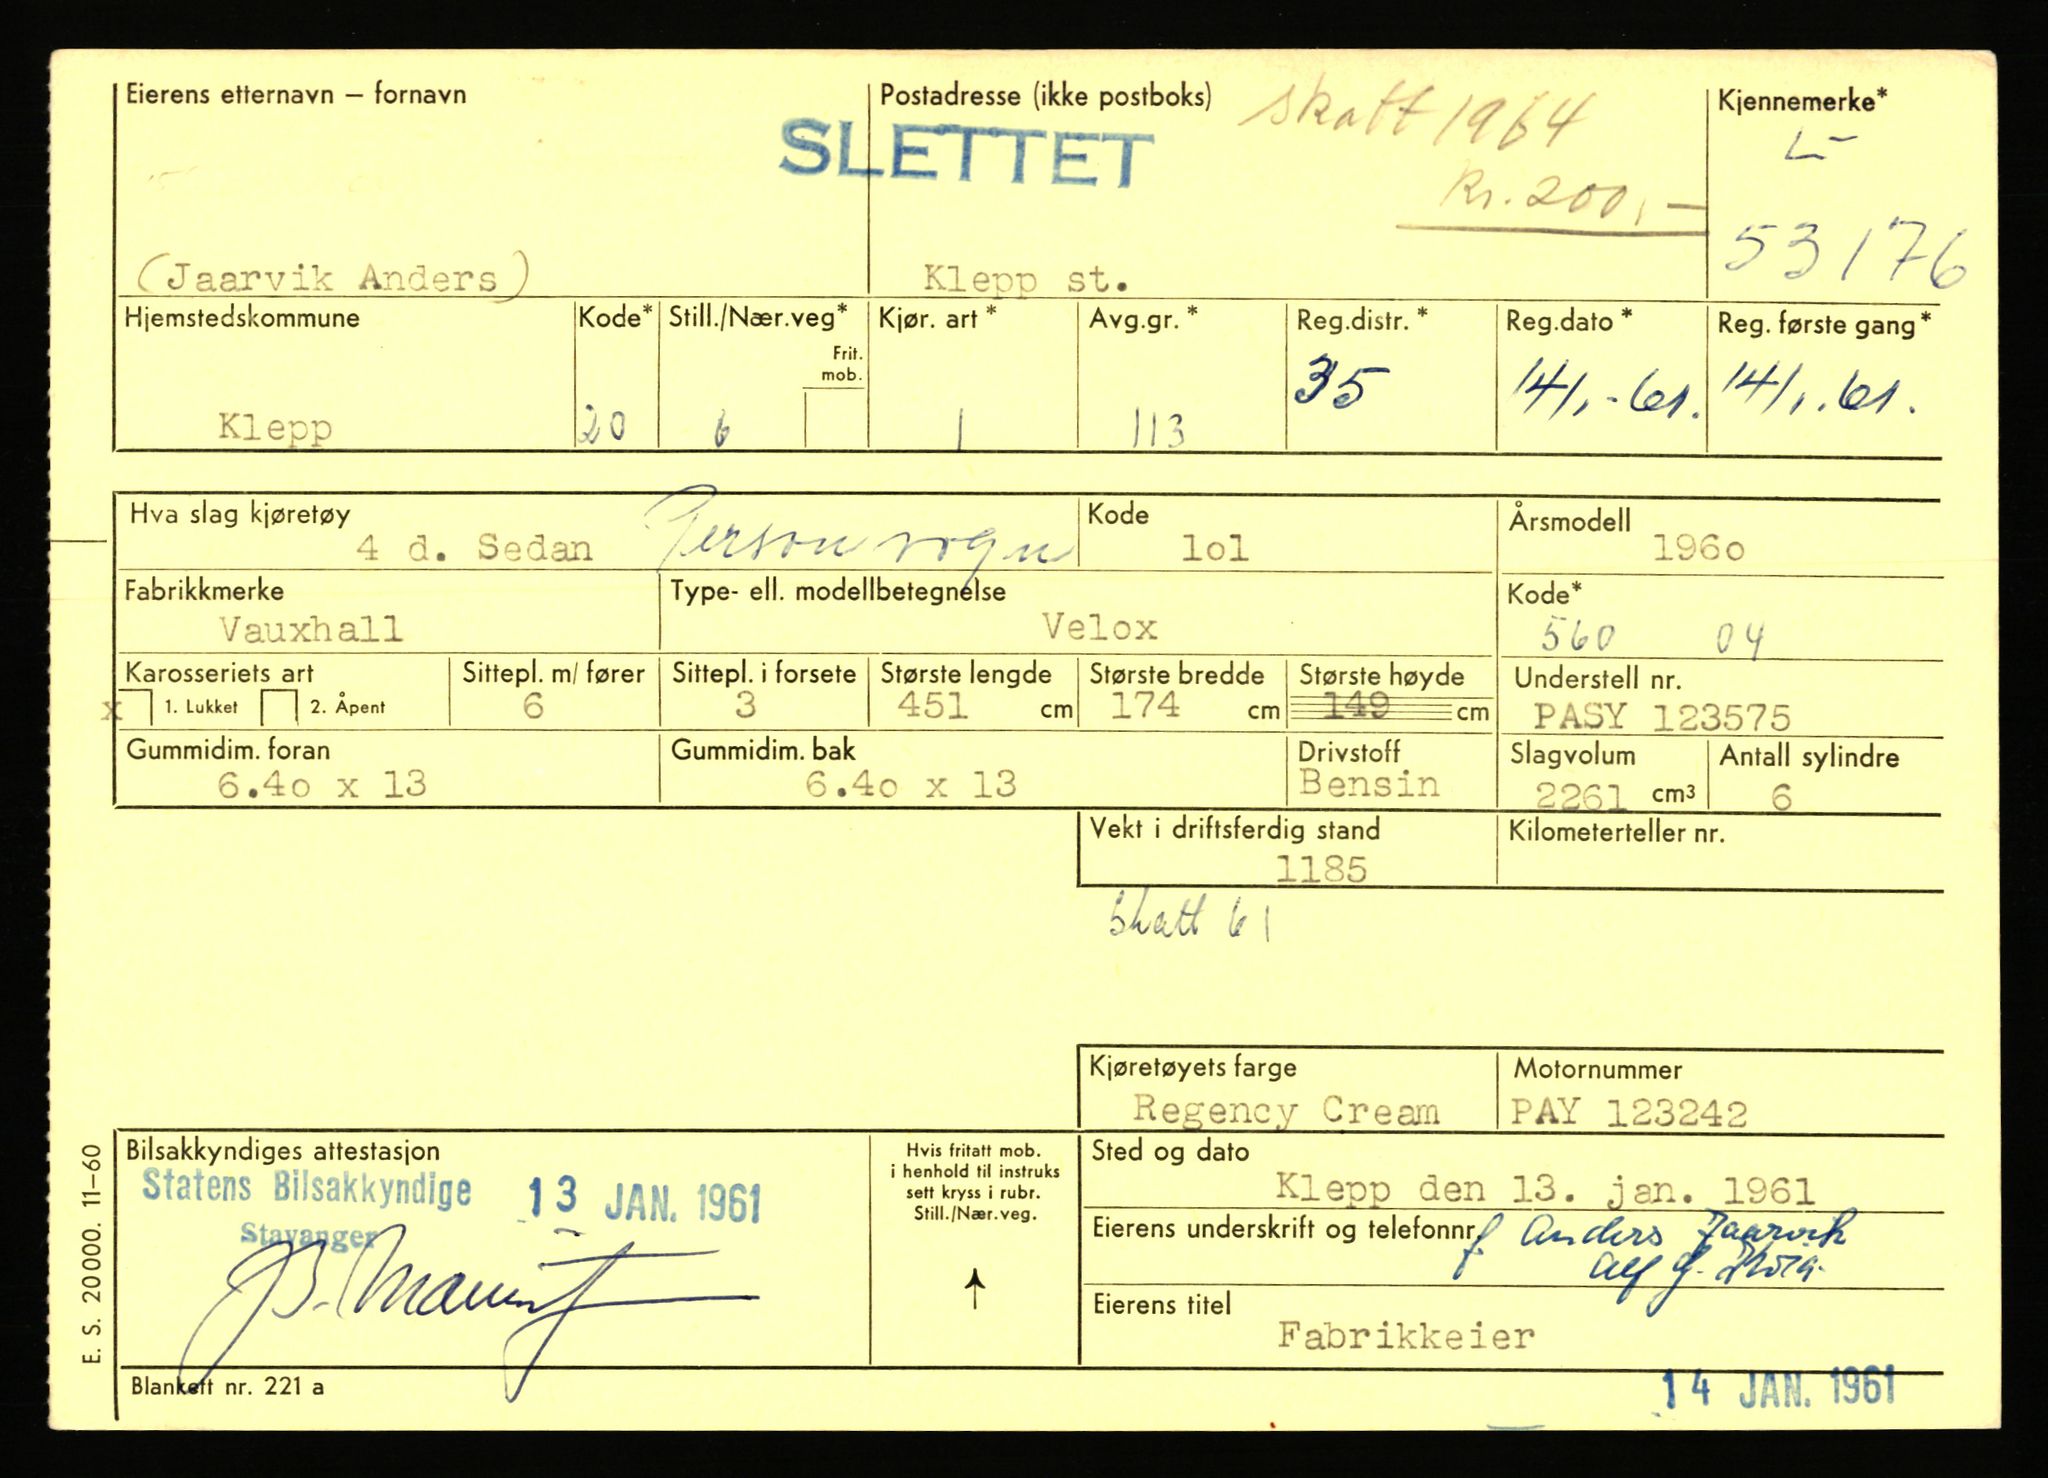 Eierens etternavn – fornavn
Postadresse (ikke postboks)
skatt 1964
Kjennemerke*
L-
SLETTET
kr. 200,-
53176
(Jaarvik Anders)
Klepp st.
Hjemstedskommune
Kode*
Still./Nær.veg*
Kjør. art *
Avg.gr. *
Reg.distr. *
Reg.dato *
Reg. første gang*
Frit.
mob.
35
14/1.-61.
14/1.61.
Klepp
20
6
1
113
Hva slag kjøretøy
Kode
Årsmodell
4 d. Sedan Personvogn
1o1
196o
Fabrikkmerke
Type- ell. modellbetegnelse
Kode*
Vauxhall
Velox
560 04
Karosseriets art
Sittepl. m/ fører
Sittepl. i forsete
Største lengde
Største bredde
Største høyde
Understell nr.
x 1. Lukket 2. Åpent
6
3
451 cm
174 cm
149 cm
PASY 123575
Gummidim. foran
Gummidim. bak
Drivstoff
Slagvolum
Antall sylindre
6.4o x 13
6.4o x 13
Bensin
2261 cm³
6
Vekt i driftsferdig stand
Kilometerteller nr.
1185
Skatt 61
Kjøretøyets farge
Motornummer
Regency Cream
PAY 123242
Bilsakkyndiges attestasjon
Hvis fritatt mob.
i henhold til instruks
sett kryss i rubr.
Still./Nær.veg.
Sted og dato
Statens Bilsakkyndige
13 JAN. 1961
Klepp den 13. jan. 1961
Stavanger
Eierens underskrift og telefonnr.
f. Anders Jaarvik
Alf
Eierens titel
Fabrikkeier
E. S. 20000. 11–60
Blankett nr. 221 a
14 JAN. 1961